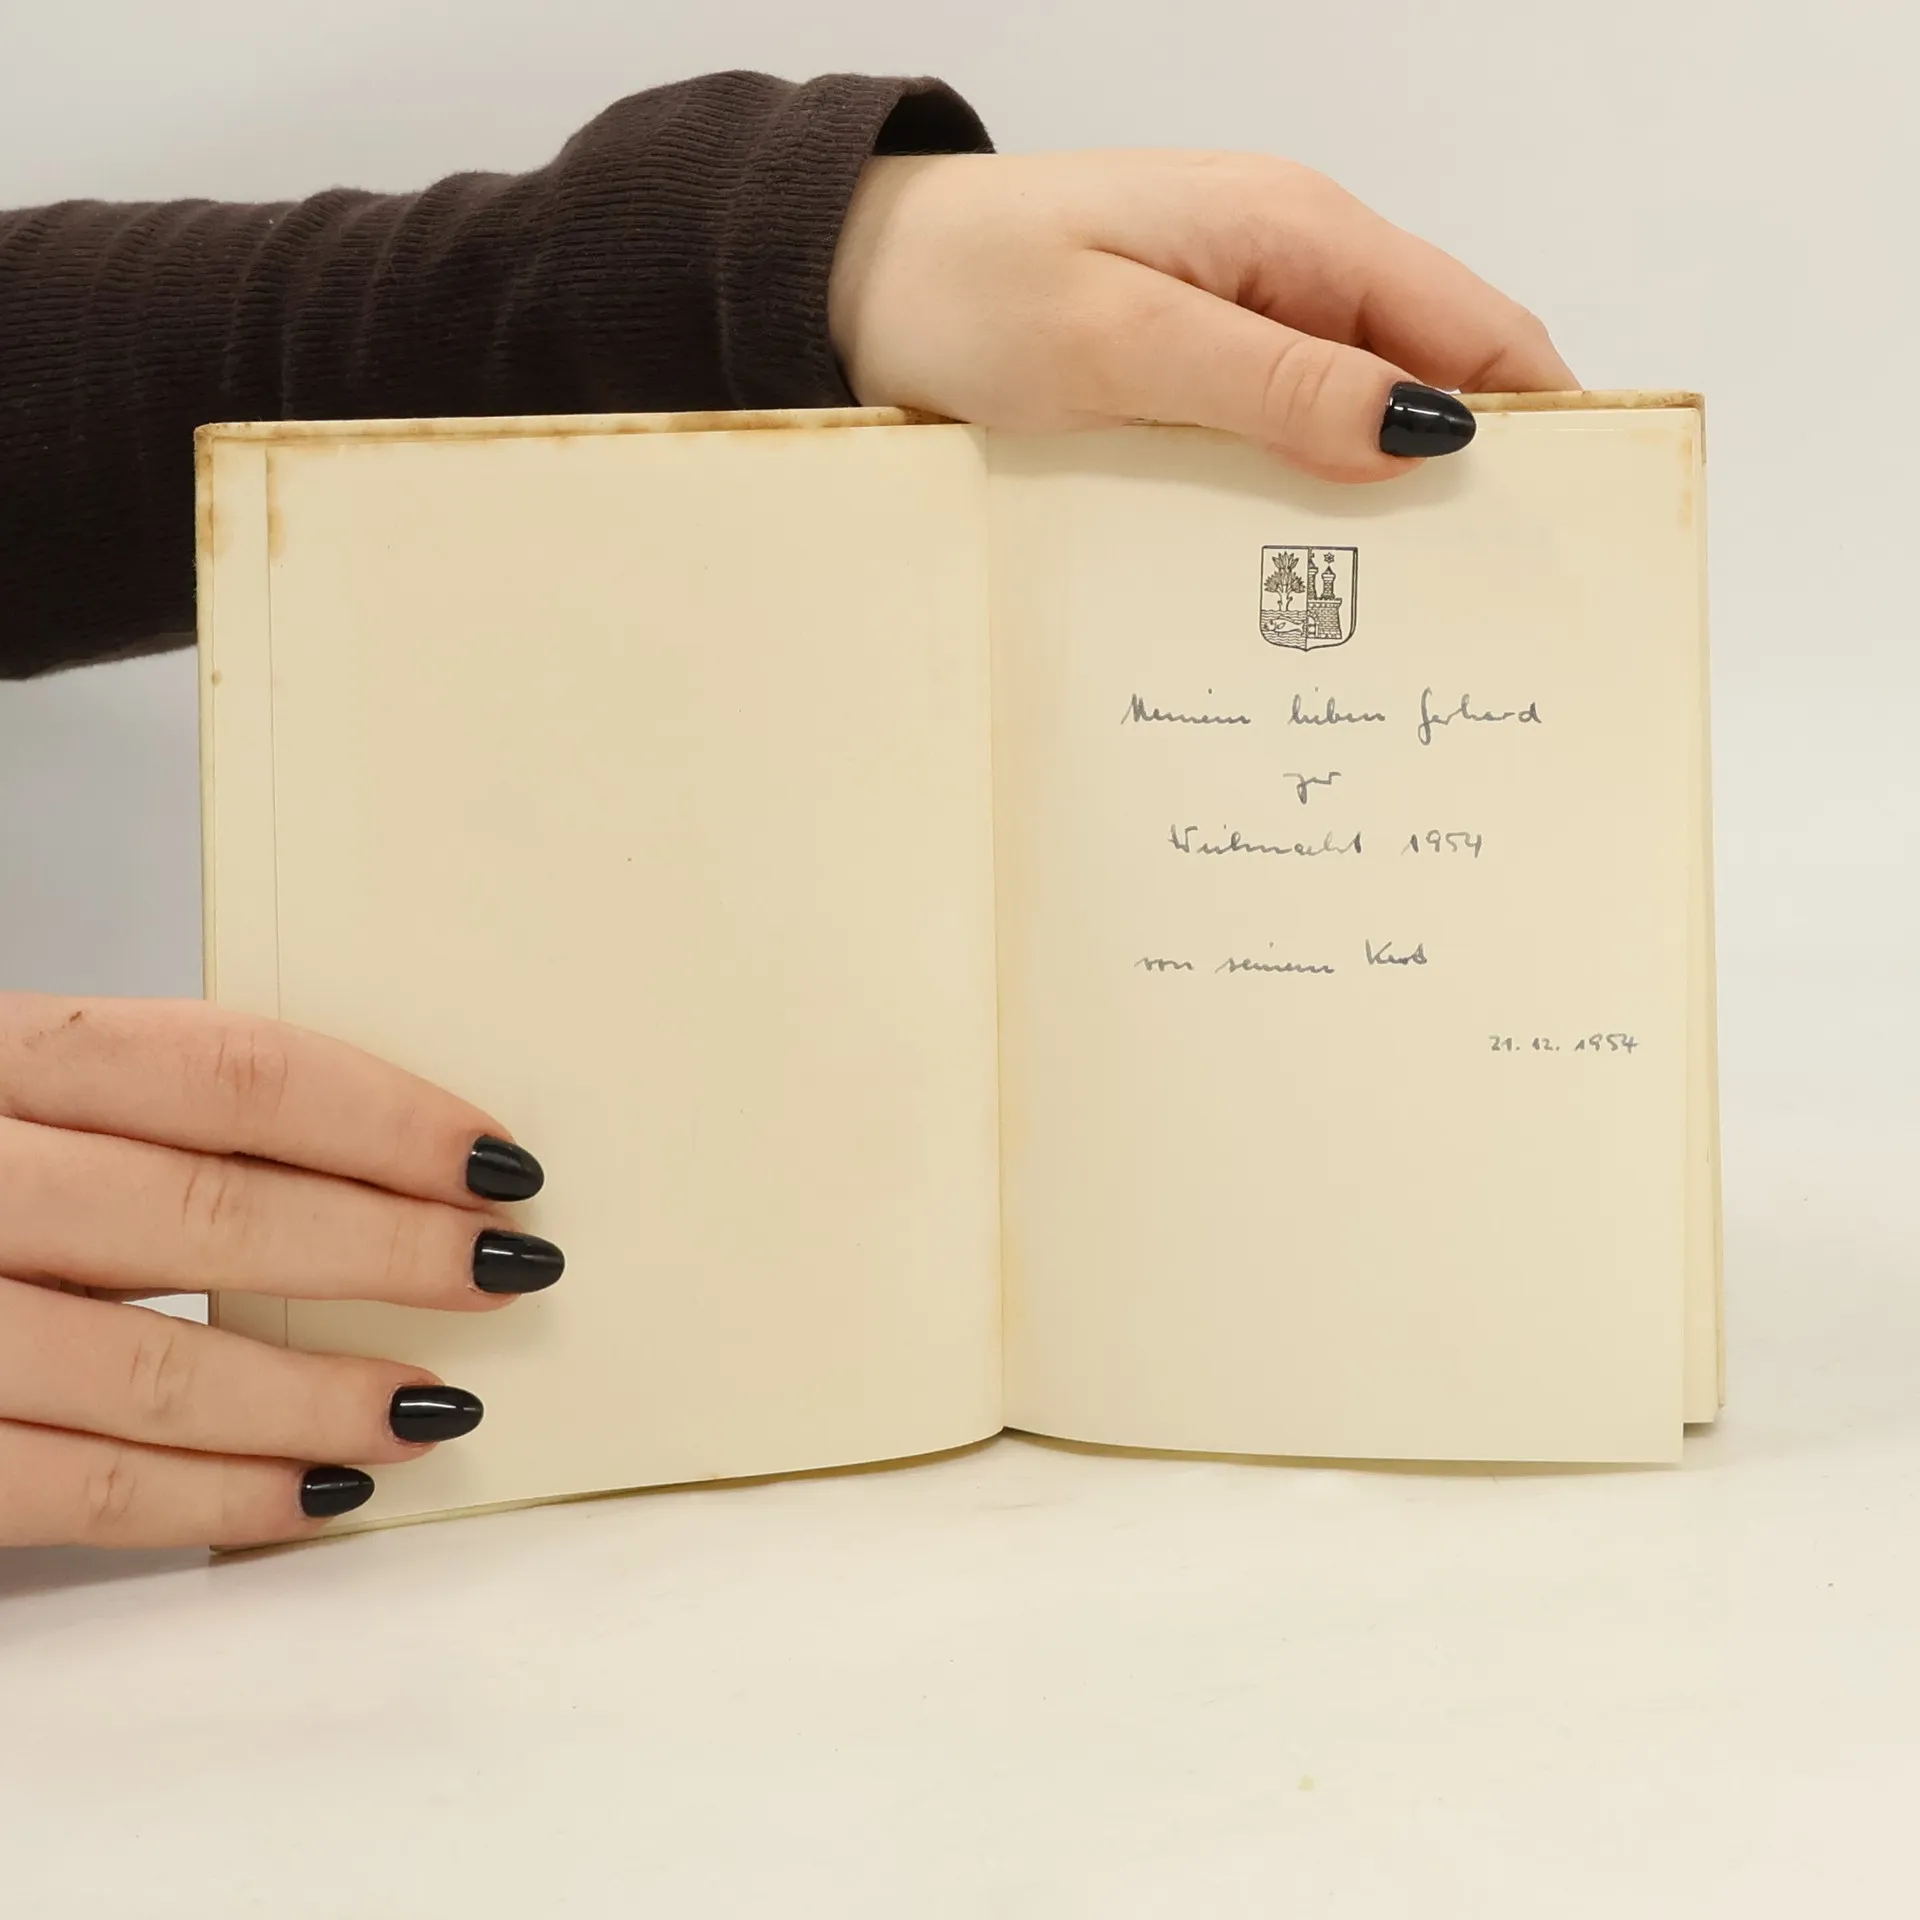 Meinem lieben Gerhard
zur
Weihnacht 1954
von seinem Kurt
21. 12. 1954